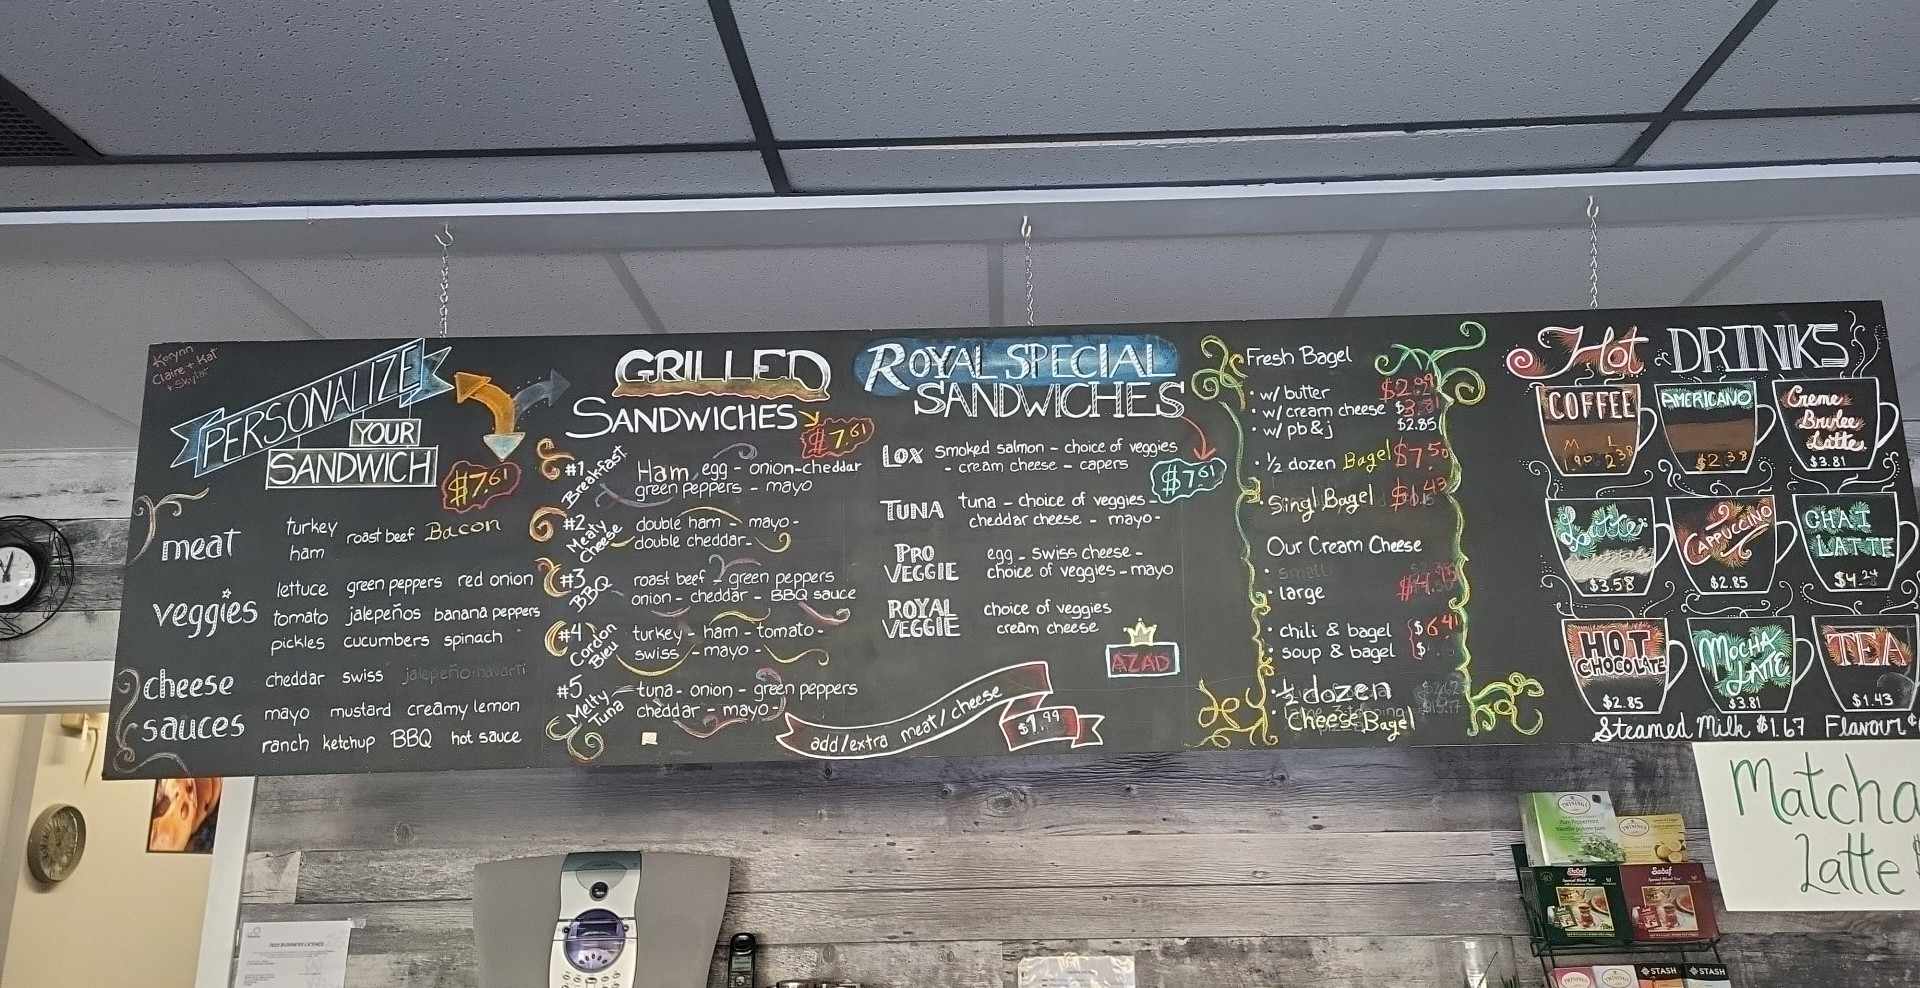 Korynn
Claire + Kat
+ Skylar
PERSONALIZE
YOUR
SANDWICH
$7.61
meat
turkey roast beef Bacon
ham
veggies
lettuce green peppers red onion
tomato jalepeños banana peppers
pickles cucumbers spinach
cheese
cheddar swiss jalepeño havarti
sauces
mayo mustard creamy lemon
ranch ketchup BBQ hot sauce
GRILLED
SANDWICHES
$7.61
#1 Breakfast
Ham, egg - onion-cheddar
green peppers - mayo
#2 Meaty Cheese
double ham - mayo -
double cheddar -
#3 BBQ
roast beef - green peppers
onion - cheddar - BBQ sauce
#4 Cordon Bleu
turkey - ham - tomato -
swiss - mayo -
#5 Melty Tuna
tuna - onion - green peppers
cheddar - mayo -
ROYAL SPECIAL
SANDWICHES
$7.61
LOX smoked salmon - choice of veggies
- cream cheese - capers
TUNA tuna - choice of veggies -
cheddar cheese - mayo -
PRO VEGGIE
egg - swiss cheese -
choice of veggies - mayo
ROYAL VEGGIE
choice of veggies
cream cheese
AZAD
add/extra meat/cheese $1.99
Fresh Bagel
• w/ butter $2.99
• w/ cream cheese $3.81
• w/ pb & j $2.85
• ½ dozen Bagel $7.50
• Singl Bagel $1.43
Our Cream Cheese
• small
• large
• chili & bagel $6.41
• soup & bagel $
• ½ dozen
Cheese Bagel
Hot DRINKS
COFFEE
M L
1.90 2.38
AMERICANO
$2.38
Creme
Brulee
Latte
$3.81
Latte
$3.58
CAPPUCCINO
$2.85
CHAI
LATTE
$4.24
HOT
CHOCOLATE
$2.85
MOCHA
LATTE
$3.81
TEA
$1.43
Steamed Milk $1.67 Flavour
Matcha
Latte
TWININGS
TWININGS
Sadaf
Sadaf
STASH
STASH